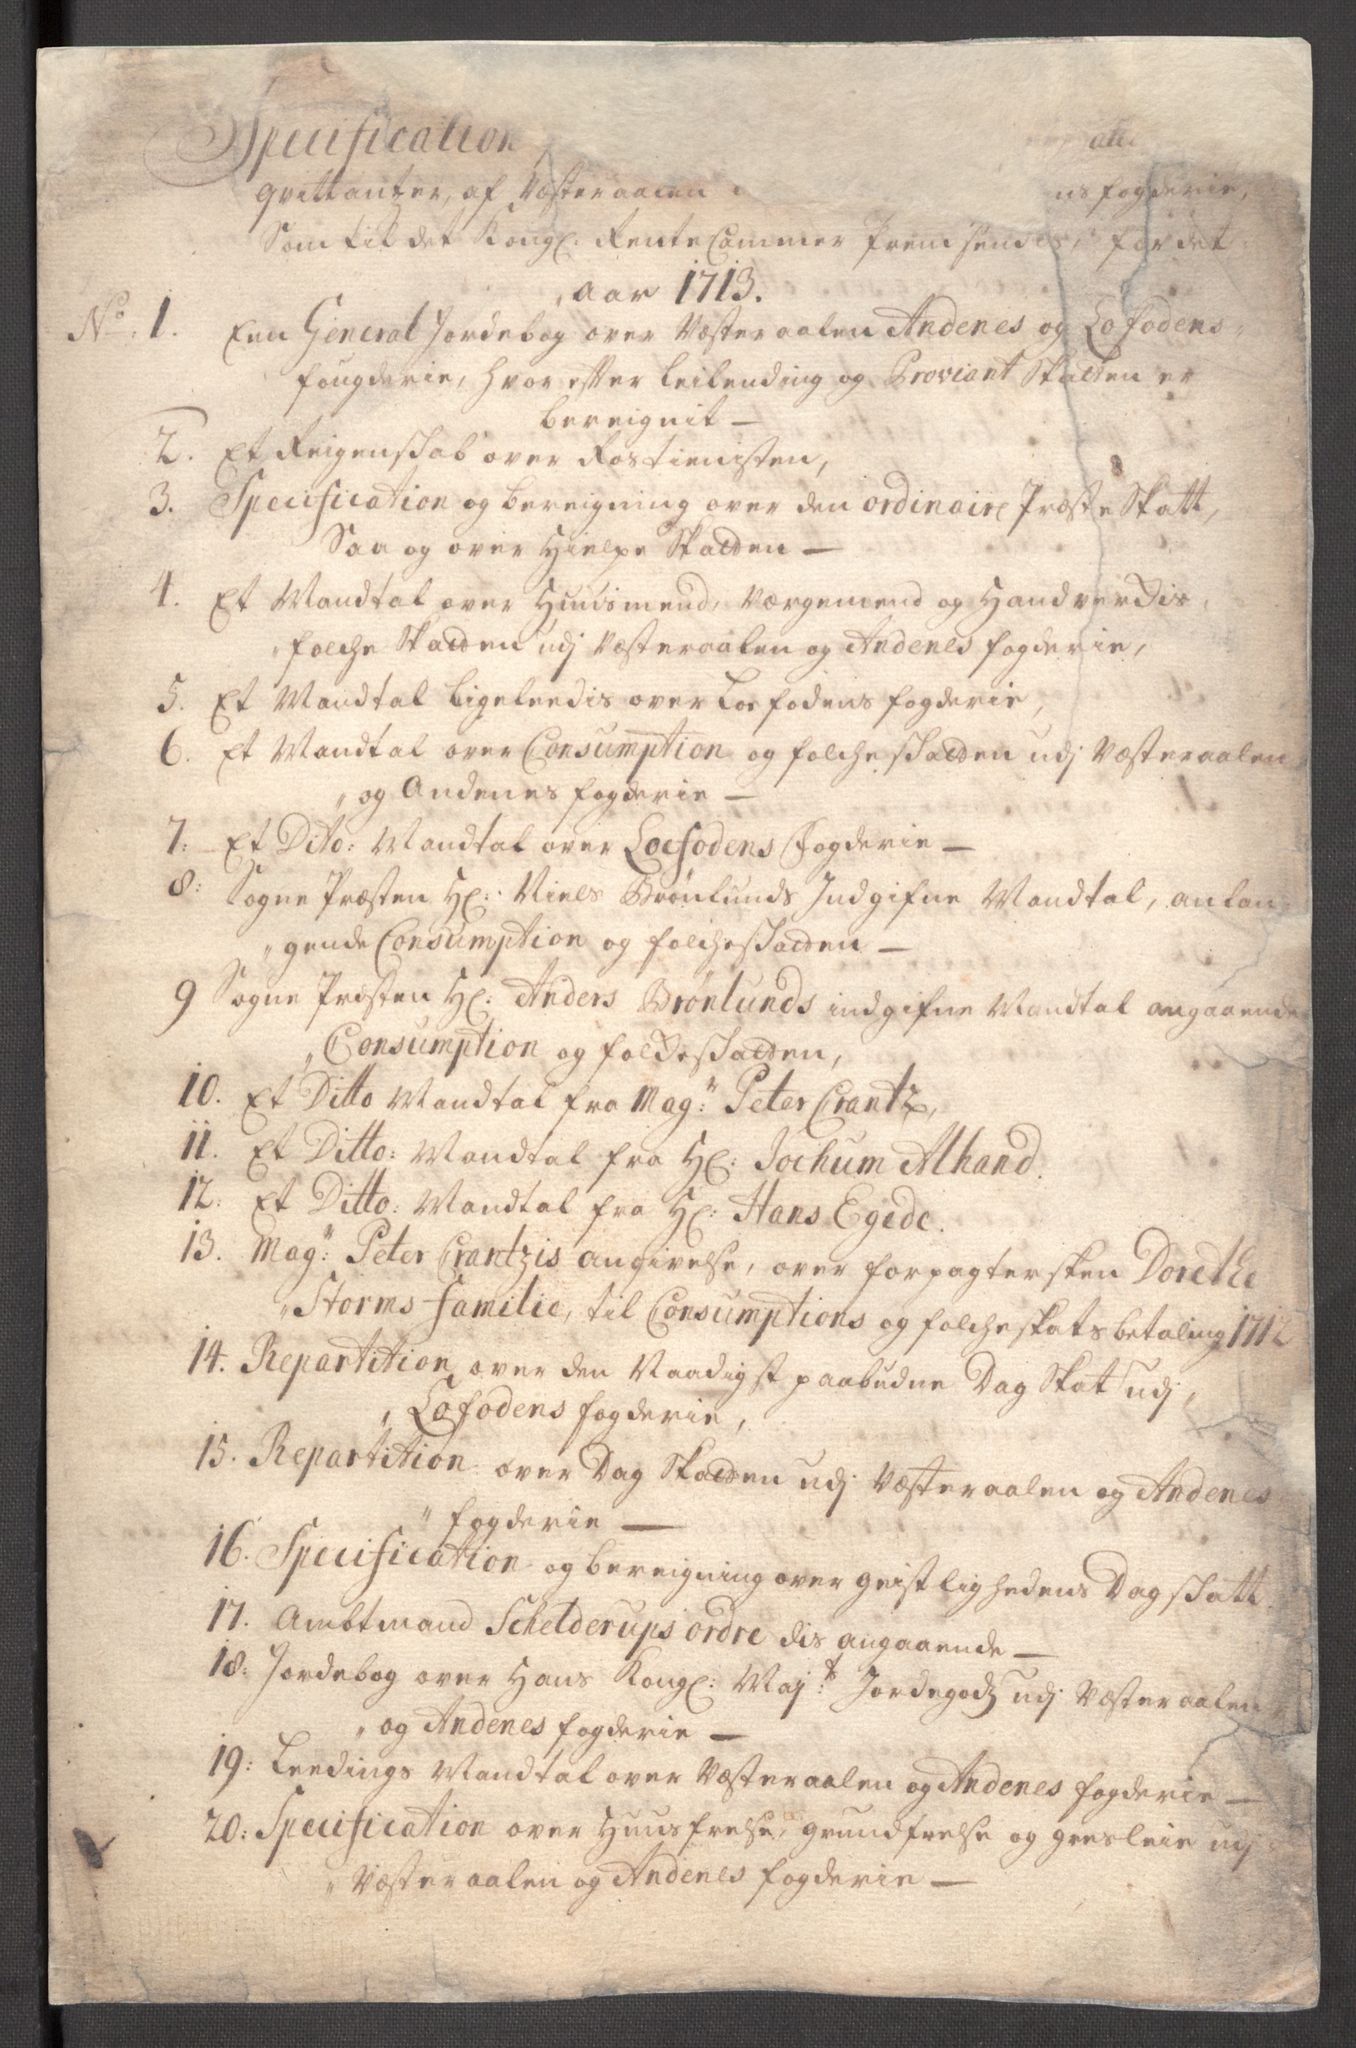 Specification
qvittantzer, af Væsteraalen ns fogderie,
Som til det Kongl: Rente Cammer fremsendes, for det
aar 1713.
No: 1. Een General Jordebog over Væsteraalen Andenes og Lofodens
fougderie, hvor efter Leilending og Proviant Skatten er
bereignit —
2. Et Reigenskab over Rostienisten,
3. Specification og bereigning over den ordinaire Præste Skatt,
Saa og over Hielpe Skatten —
4. Et Mandtal over Huusmend, Værgemend og Handverchs
folche Skatten udj Væsteraalen og Andenes fogderie,
5. Et Mandtal ligeleedis over Loefodens fogderie,
6. Et Mandtal over Consumption og folcheskatten udj Væsteraalen
og Andenes fogderie —
7: Et Dito: Mandtal over Loefodens Fogderie —
8: Sogne Præsten Hl: Niels Brønlunds Indgifne Mandtal, anlan-
gende Consumption og folcheskatten —
9 Sogne Præsten Hl: Anders Brønlunds indgifne Mandtal angaaende
Consumption og folcheskatten,
10. Et Ditto Mandtal fra Magr: Peter Crantz,
11. Et Ditto: Mandtal fra Hl: Jochum Alhand.
12. Et Ditto: Mandtal fra Hl: Hans Egede.
13. Magr: Peter Crantzis angivelse, over forpagtersken Dorethe
Storms familie, til Consumptions og folcheskats betaling 1712
14. Repartition over den Naadigst paabudne Dag Skat udj,
Lofodens fogderie,
15. Repartition over Dag Skatten udj Væsteraalen og Andenes
fogderie —
16. Specification og bereigning over geistlighedens Dagskatt
17. Ambtmand Schelderups ordre dis angaaende —
18: Jordebog over Hans Kongl: Majt: Jordegodz udj Væsteraalen
og Andenes fogderie —
19: Leedings Mandtal over Væsteraalen og Andenes fogderie —
20: Specification over Huusfrelse, grundfrelse og gresleie udj
Væsteraalen og Andenes fogderie —